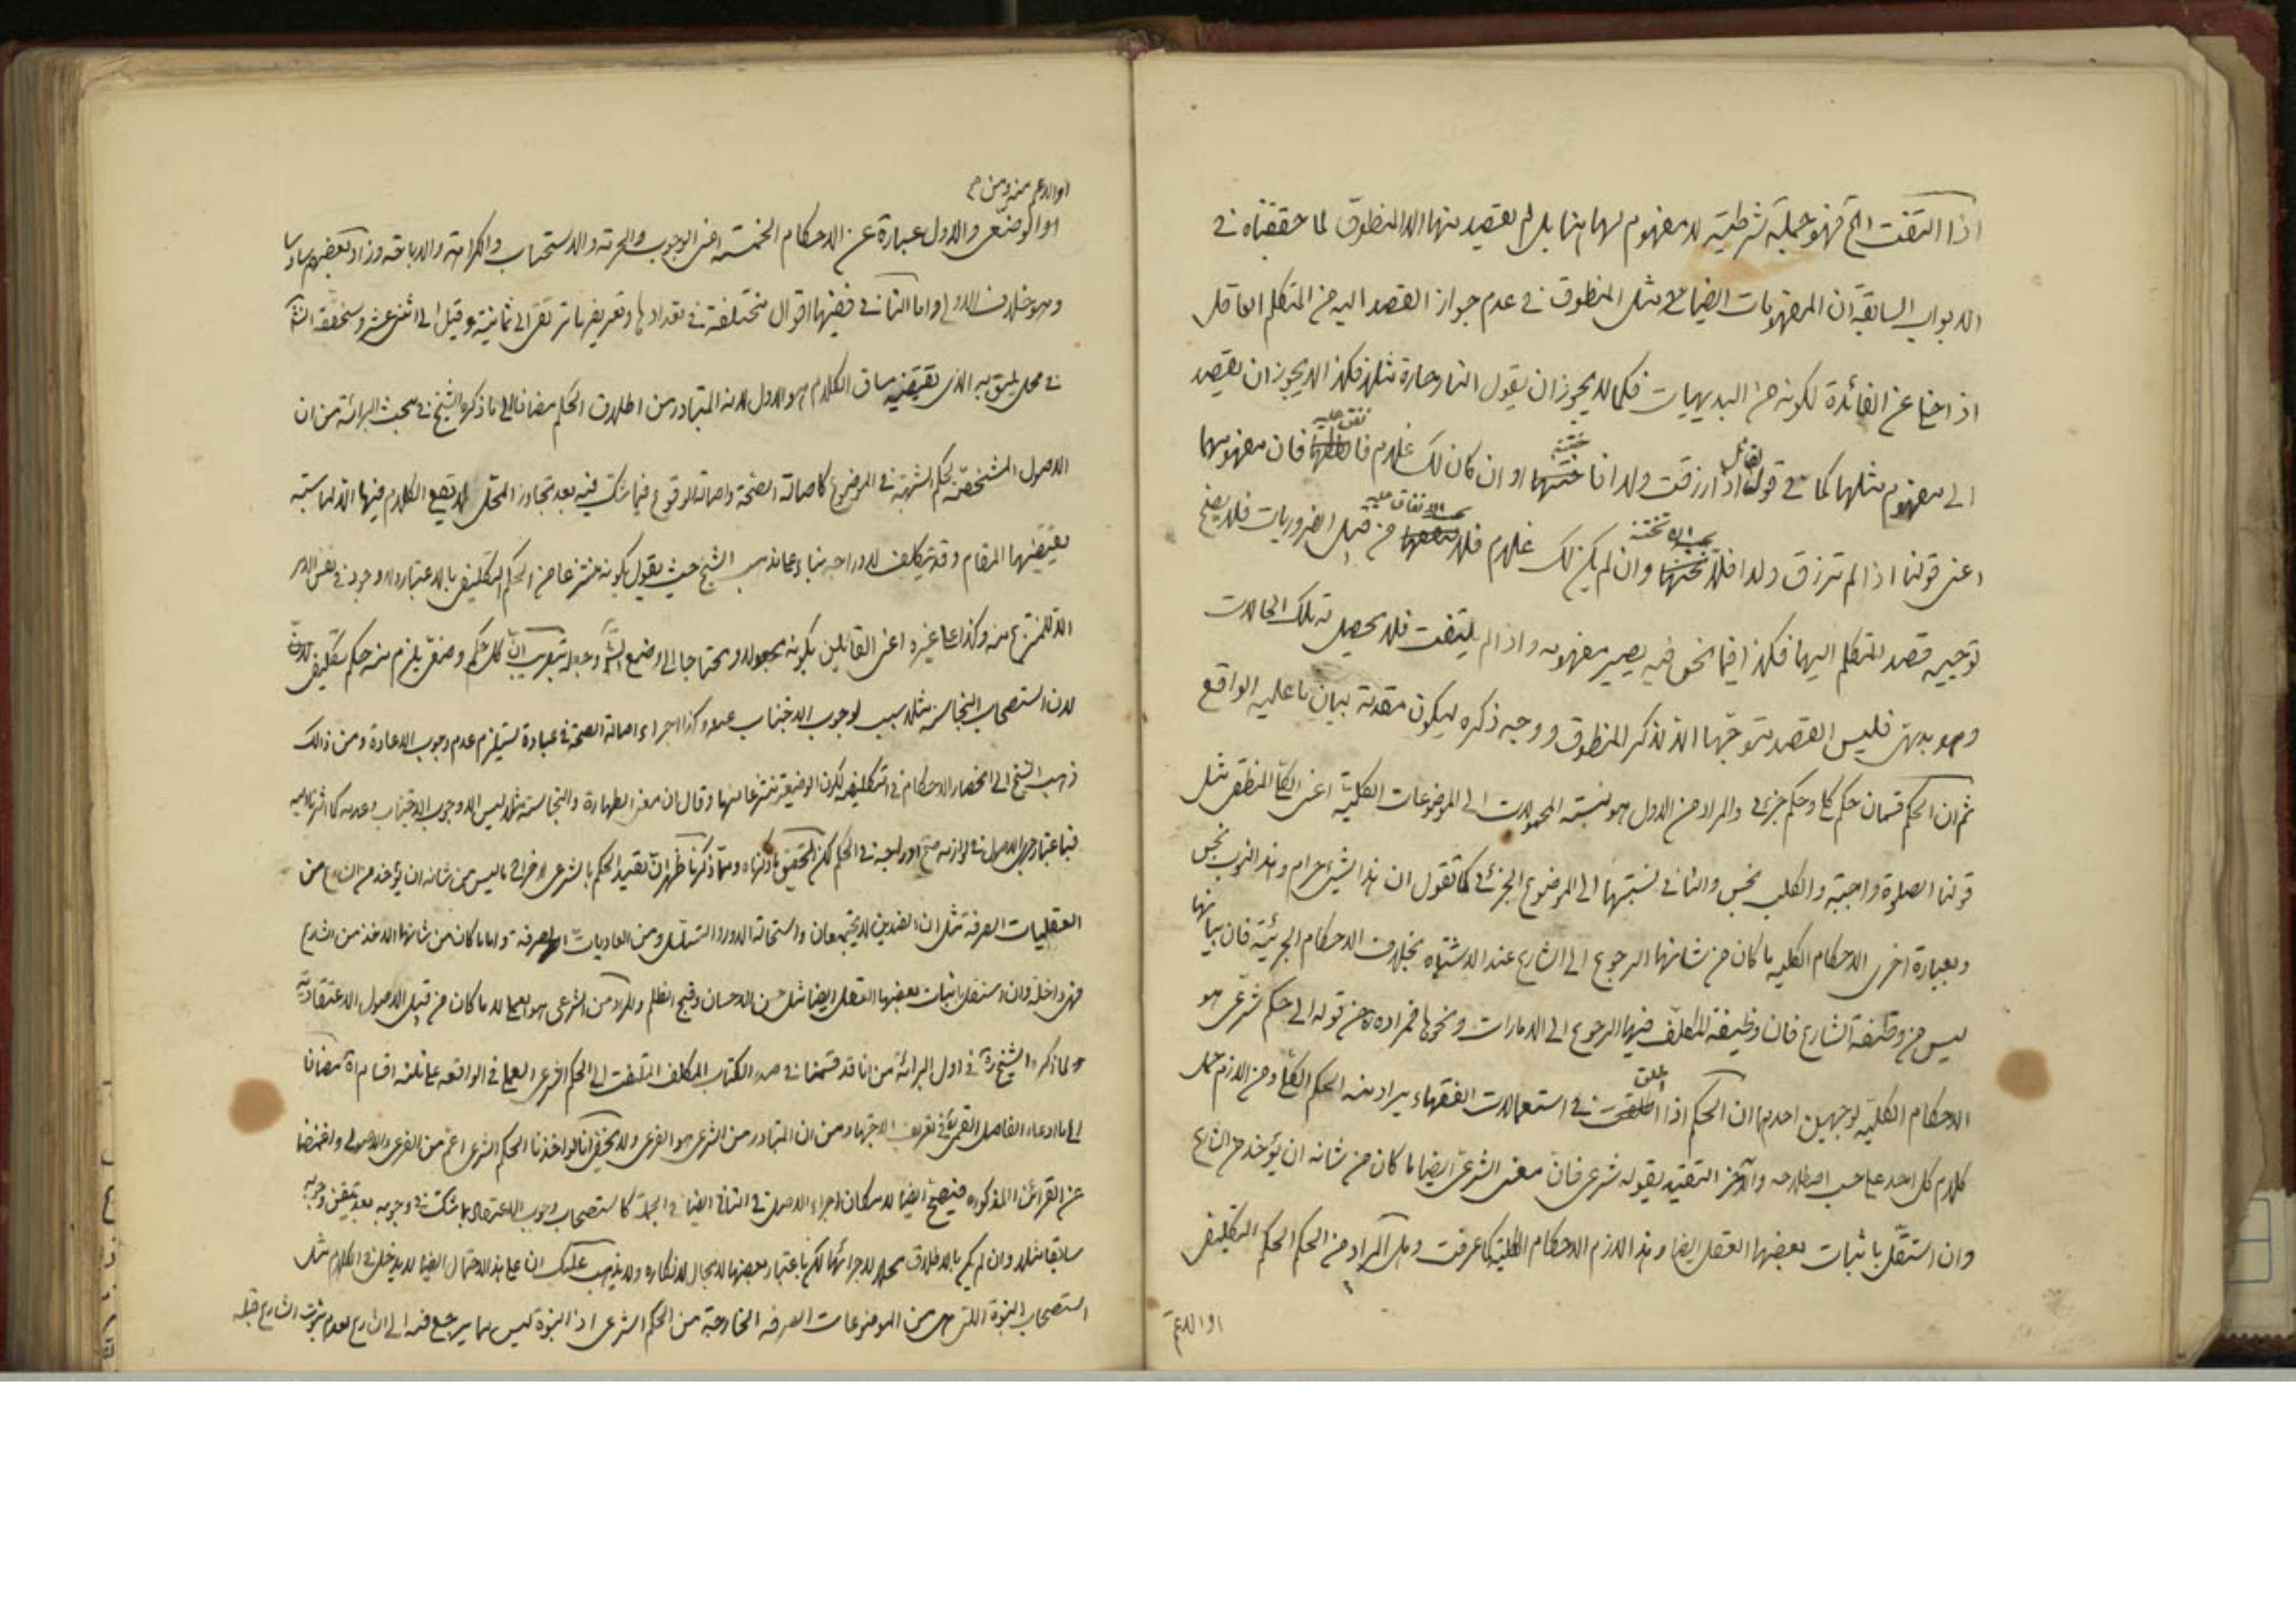 اذا التفت الخ فهو جملية شرطية لا مفهوم لها هنا بل لم يقصد منها الا المنطوق لما حققناه في
الابواب السابقة ان المفهومات ايضا مثل المنطوق في عدم جواز القصد اليه من المتكلم العاقل
اذا خلى عن الفائدة لكونه من البديهيات فكما لا يجوز ان يقول النار حارة مثلا فكذا لا يجوز ان يقصد
الى مفهوم مثلها كما في قول القائل اذا رزقت ولدا فاختنه او ان كان لك غلام فانفق عليه فان مفهومهما
اعنى قولنا اذا لم ترزق ولدا فلا يجب ان تختنه وان لم يكن لك غلام فلا يجب الانفاق عليه من قبيل الضروريات فلا يصح
توجيه قصد المتكلم اليها فكذا فيما نحن فيه يصير مفهومه واذا لم يلتفت فلا يحصل له تلك الحالات
وهو بديهى فليس القصد متوجها الا لذكر المنطوق ووجه ذكره ليكون مقدمة بيان ما عليه الواقع
ثم ان الحكم قسمان حكم كلى وحكم جزئى والمراد من الاول هو نسبته المحمولات الى الموضوعات الكلية اعنى الكلى المنطقى مثل
قولنا الصلوة واجبة والكلب نجس والثانى نسبتها الى الموضوع الجزئى كما تقول ان هذا الشيئ حرام وهذا الثوب نجس
وبعبارة اخرى الاحكام الكليه ما كان من شانها الرجوع الى الشارع عند الاشتباه بخلاف الاحكام الجزئية فان بيانها
ليس من وظيفة الشارع فان وظيفة المكلف فيها الرجوع الى الامارات ونحوها فمراده من قوله الى حكم شرعى هو
الاحكام الكلية لوجهين احدهما ان الحكم اذا اطلق في استعمالات الفقهاء يراد منه الحكم الكلى ومن اللازم حمل
كلام كل احد على حسب اصطلاحه والآخر التقييد بقوله شرعى فان معنى الشرعى ايضا ما كان من شانه ان يؤخذ من الشارع
وان استقل باثبات بعضها العقل ايضا وهذا لازم الاحكام الكلية كما عرفت وهل المراد من الحكم الحكم التكليفى
او الاعم
او الاعم منه ومن
او الوضعى والاول عبارة عن الاحكام الخمسة اعنى الوجوب والحرمة والاستحباب والكراهة والاباحة وزاد بعضهم سادسا
وهو خلاف الاولى واما الثانى ففيها اقوال مختلفة في تعدادها وتعريفها ترتقى الى ثمانية وقيل الى اثنى عشر وسنحققه انشاء
في محل يليق به الذى يقتضيه سياق الكلام هو الاول لانه المتبادر من اطلاق الحكم مضافا الى ما ذكره الشيخ في مبحث البرائة من ان
الاصول المشخصة لحكم الشبهة في الموضوع كاصالة الصحة واصالة الوقوع فيما شك فيه بعد تجاوز المحل لا يقع الكلام فيها الا لمناسبة
يقتضيها المقام وقد يتكلف لادراجه بناء على مذهب الشيخ حيث يقول بكونه منتزعا من الحكم التكليفى بالاعتبار ولا وجود في نفس الامر
الا للمنتزع منه وكذا على غيره اعنى القائلين بكونه مجعولا ومحتاجا الى وضع الشارع وجعله بتقريب ان كل حكم وضعى يلزم منه حكم تكليفى
لان استصحاب النجاسة مثلا سبب لوجوب الاجتناب عنه وكذا اجراء اصالة الصحة في عبادة يستلزم عدم وجوب الاعادة ومن ذلك
ذهب الشيخ الى انحصار الاحكام في التكليفية لكون الوضعية منتزعا منها وقال ان معنى الطهارة والنجاسة مثلا ليس الا وجوب الاجتناب وعدمه
العقليات الصرفة مثل ان الضدين لا يجتمعان واستحالة الدور والتسلسل ومن العاديات الصرفة واما ما كان من شانها الاخذ من الشارع
فهى داخلة وان استقل باثبات بعضها العقل ايضا مثل حسن الاحسان وقبح الظلم والمراد من الشرعى هو العملى لا ما كان من قبيل الاصول الاعتقادية
لما ذكره الشيخ ره في اول البرائة من انا قد قسمنا في صدر الكتاب المكلف الملتفت الى الحكم الشرعى العملى في الواقعه على ثلثه اقسام مضافا
الى ما ادعاه الفاضل القمى في تعريف الاجتهاد من ان المتبادر من الشرعى هو الفرعى ولا يخفى انا لو اخذنا الحكم الشرعى اعم من الفرعى والاصولى واغمضنا
عن القرائن المذكوره فيصح ايضا لامكان اجراء الاصل في الثانى ايضا في الجملة كاستصحاب وجوب الاعتقاد بما شك في وجوبه بعد تيقن وجوبه
سابقا مثلا وان لم يكن بالاطلاق محلا لاجرائها لكن باعتبار بعضها لا مجال لانكاره ولا يذهب عليك ان على هذا الاحتمال ايضا لا يدخل في الكلام مثل
استصحاب النبوة اللتى هى من الموضوعات الصرفه الخارجة من الحكم الشرعى اذ النبوة ليس مما يرجع فيه الى الشارع لعدم ثبوت الشارع قبله